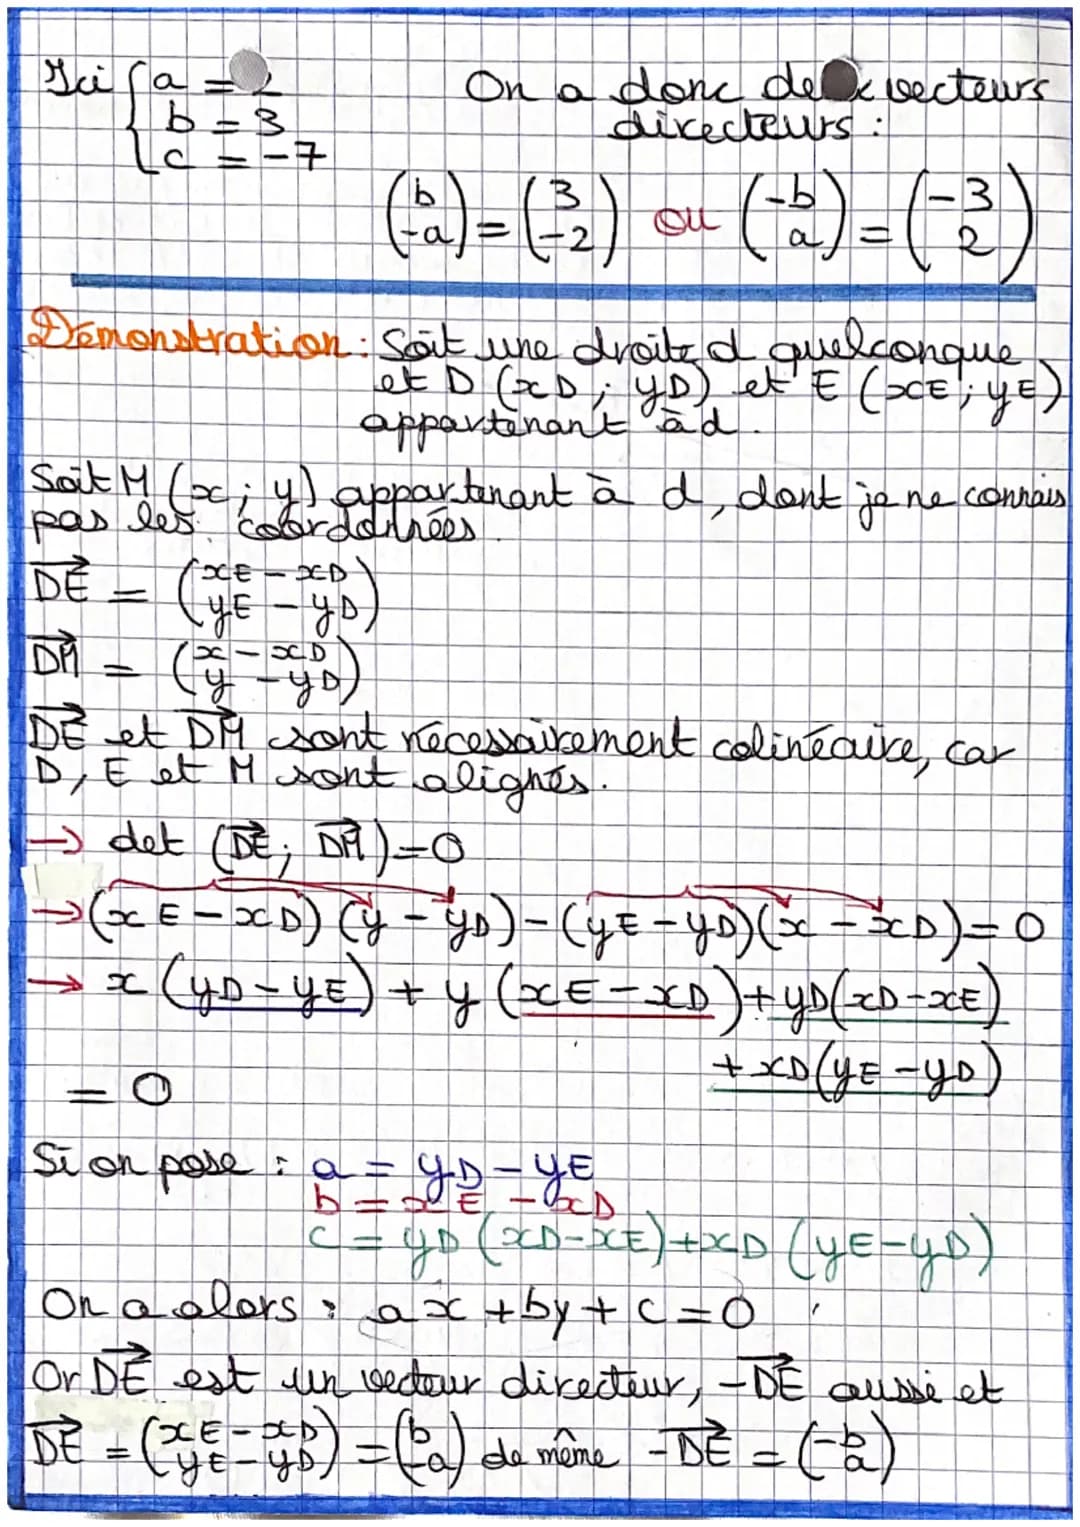 Ici { a =
b = 3
c = -7
On a donc vecteurs
directeurs :
(b / -a) = (3 / -2) ou (-b / a) = (-3 / 2)
Démonstration : Soit une droite d quelconque
et D (xD ; yD) et E (xE ; yE)
appartenant à d.
Soit M (x ; y) appartenant à d, dont je ne connais
pas les coordonnées.
DE = (xE - xD / yE - yD)
DM = (x - xD / y - yD)
DE et DM sont nécessairement colinéaire, car
D, E et M sont alignés.
→ det (DE ; DM) = 0
→ (xE - xD) (y - yD) - (yE - yD)(x - xD) = 0
→ x (yD - yE) + y (xE - xD) + yD(xD - xE)
+ xD(yE - yD)
= 0
Si on pose : a = yD - yE
b = xE - xD
c = yD (xD - xE) + xD (yE - yD)
On a alors : ax + by + c = 0
Or DE est un vecteur directeur, -DE aussi et
DE = (xE - xD / yE - yD) = (b / -a) de même -DE = (-b / a)